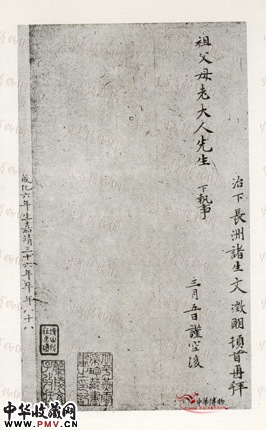 治下長洲諸生文徵明頓首再拜
祖父母老大人先生 下執事
三月五日謹空後
成化六年生嘉靖三十六年卒年八十八
中华博物
中华收藏网
Www.PMV.CN